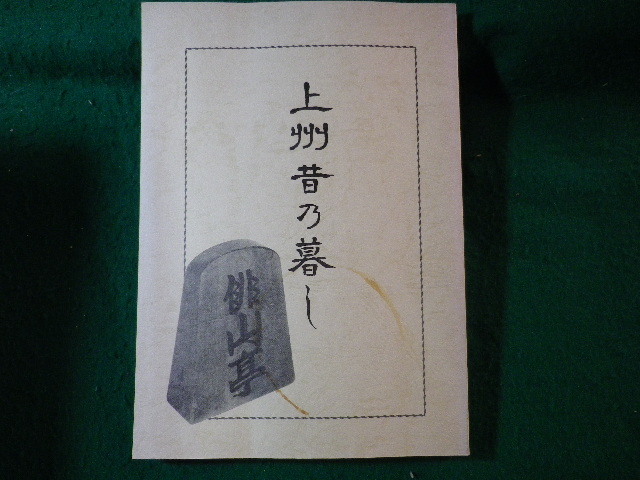 上州昔乃暮し
俳山亭